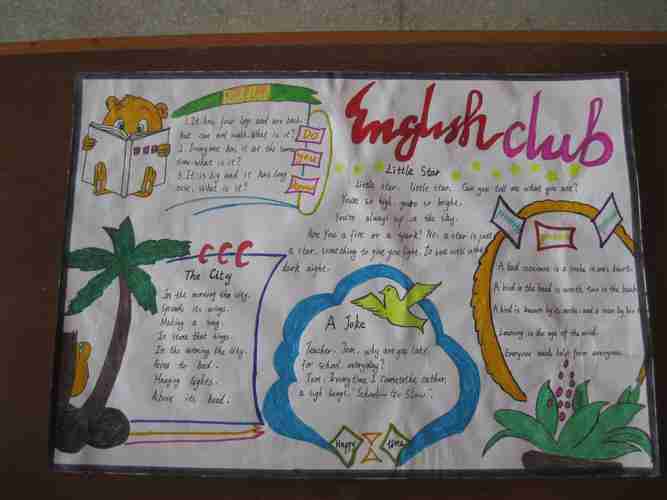 English club
1. It has four legs and one back,
but can not walk. What is it?
2. Everyone has it at the same
time. what is it?
3. It is big and it has long
nose. What is it?
Do
you
know
Little Star
Little star, little star, Can you tell me what you are?
You're so high, so bright.
You're always up in the sky.
Are you a fire or a spark? No, a star is just
a star, something to give you light. in the
dark night.
CCC
The City
In the morning the city.
Spreads its wings.
Making a song
In stone that sings.
In the evening the city.
Goes to bed.
Hanging lights.
Above its head.
A Joke
Teacher: Tom, why are you late
for school everyday?
Tom: Every time I come to the corner,
a sign says, "School — Go Slow".
Happy
time
A bad conscience is a snake in one's heart.
A bird in the hand is worth two in the bush
A bird is known by its note, and a man by his
Learning is the eye of the mind.
Everyone needs help from everyone.